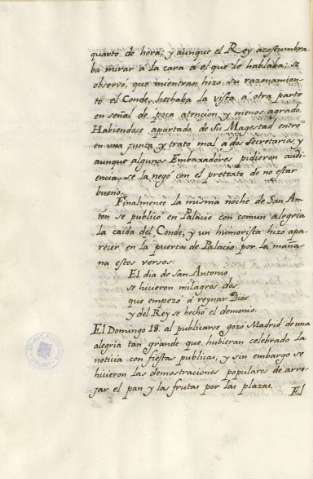 quarto de hora; y aunque el Rey acostumbra
ba mirar á la cara á el que le hablaba; se
observó, que mientras hizo su razonamien
to el Conde, hechaba la vista á otra parte
en señal de poca atencion y menos agrado
Habiendose apartado de Su Magestad entró
en una Junta, y trató mal á dos Secretarios y
aunque algunos Embaxadores pidieron audi
encia, se la negó con el pretexto de no estar
bueno.
Finalmente la misma noche de San An
ton se publicó en Palacio con comun alegria
la caida del Conde; y un humorista hizo apa
recer en la puerta de Palacio por la maña
na estos versos.
El dia de San Antonio
se hicieron milagros dos
que empezó á reynar Dios
y del Rey se hechó el demonio.
El Domingo 18. al publicarse gozó Madrid de una
alegria tan grande que hubieran celebrado la
noticia con fiestas publicas, y sin embargo se
hicieron las demostraciones populares de arro
jar el pan y las frutas por las plazas.
El